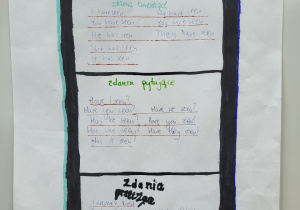 zdania twierdzące
I have seen You have seen
You have seen You have seen
He has seen They have seen
She has seen
It has seen
zdania pytające
Have I seen?
Have you seen? Have we seen?
Has he seen Have you seen?
Has she seen? Have they seen?
Has it seen?
zdania